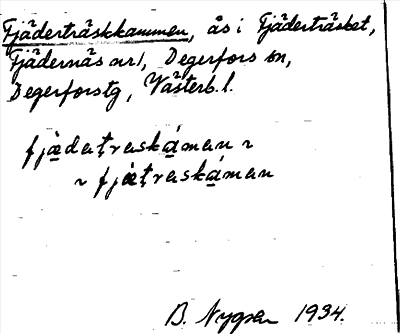 Fjäderträskkammen, ås i Fjäderträsket,
Fjädernäs nr 1, Degerfors sn,
Degerforstg, Västerb. l.
fjädatraskáman ~
~ fjätraskáman
B. Nygren 1934.